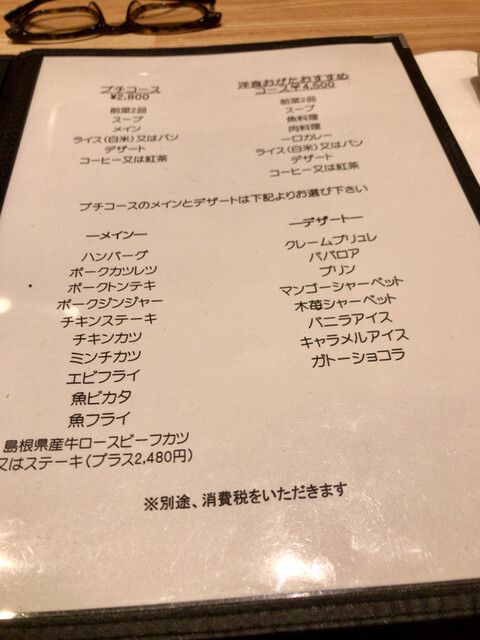 プチコース
¥2,800
前菜2品
スープ
メイン
ライス(白米)又はパン
デザート
コーヒー又は紅茶
洋食おがたおすすめ
コース¥4,500
前菜2品
スープ
魚料理
肉料理
一口カレー
ライス(白米)又はパン
デザート
コーヒー又は紅茶
プチコースのメインとデザートは下記よりお選び下さい
―メイン―
ハンバーグ
ポークカツレツ
ポークトンテキ
ポークジンジャー
チキンステーキ
チキンカツ
ミンチカツ
エビフライ
魚ピカタ
魚フライ
島根県産牛ロースビーフカツ
又はステーキ(プラス2,480円)
―デザート―
クレームブリュレ
ババロア
プリン
マンゴーシャーベット
木苺シャーベット
バニラアイス
キャラメルアイス
ガトーショコラ
※別途、消費税をいただきます